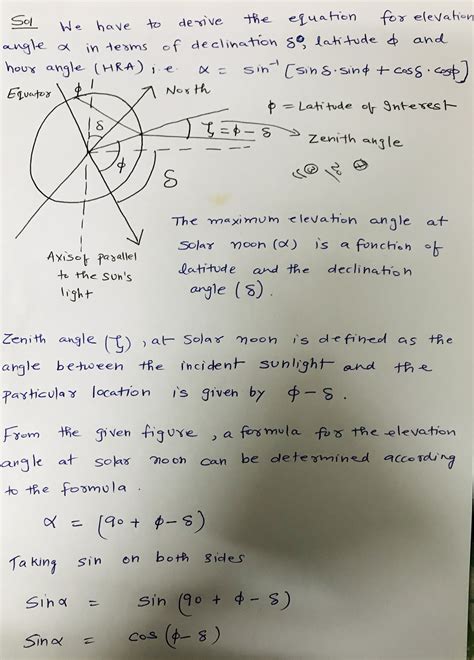 Sol We have to derive the equation for elevation
angle α in terms of declination δ°, latitude φ and
hour angle (HRA) ; i.e. α = sin⁻¹ [sinδ.sinφ + cosδ.cosφ]
Equator φ North
φ = Latitude of Interest
δ
ζ = φ - δ
Zenith angle
φ
δ
The maximum elevation angle at
solar noon (α) is a function of
latitude and the declination
angle (δ).
Axis of parallel
to the sun's
light
Zenith angle (ζ), at solar noon is defined as the
angle between the incident sunlight and the
particular location is given by φ - δ.
From the given figure, a formula for the elevation
angle at solar noon can be determined according
to the formula.
α = (90 + φ - δ)
Taking sin on both sides
Sinα = sin (90 + φ - δ)
Sinα = cos (φ - δ)